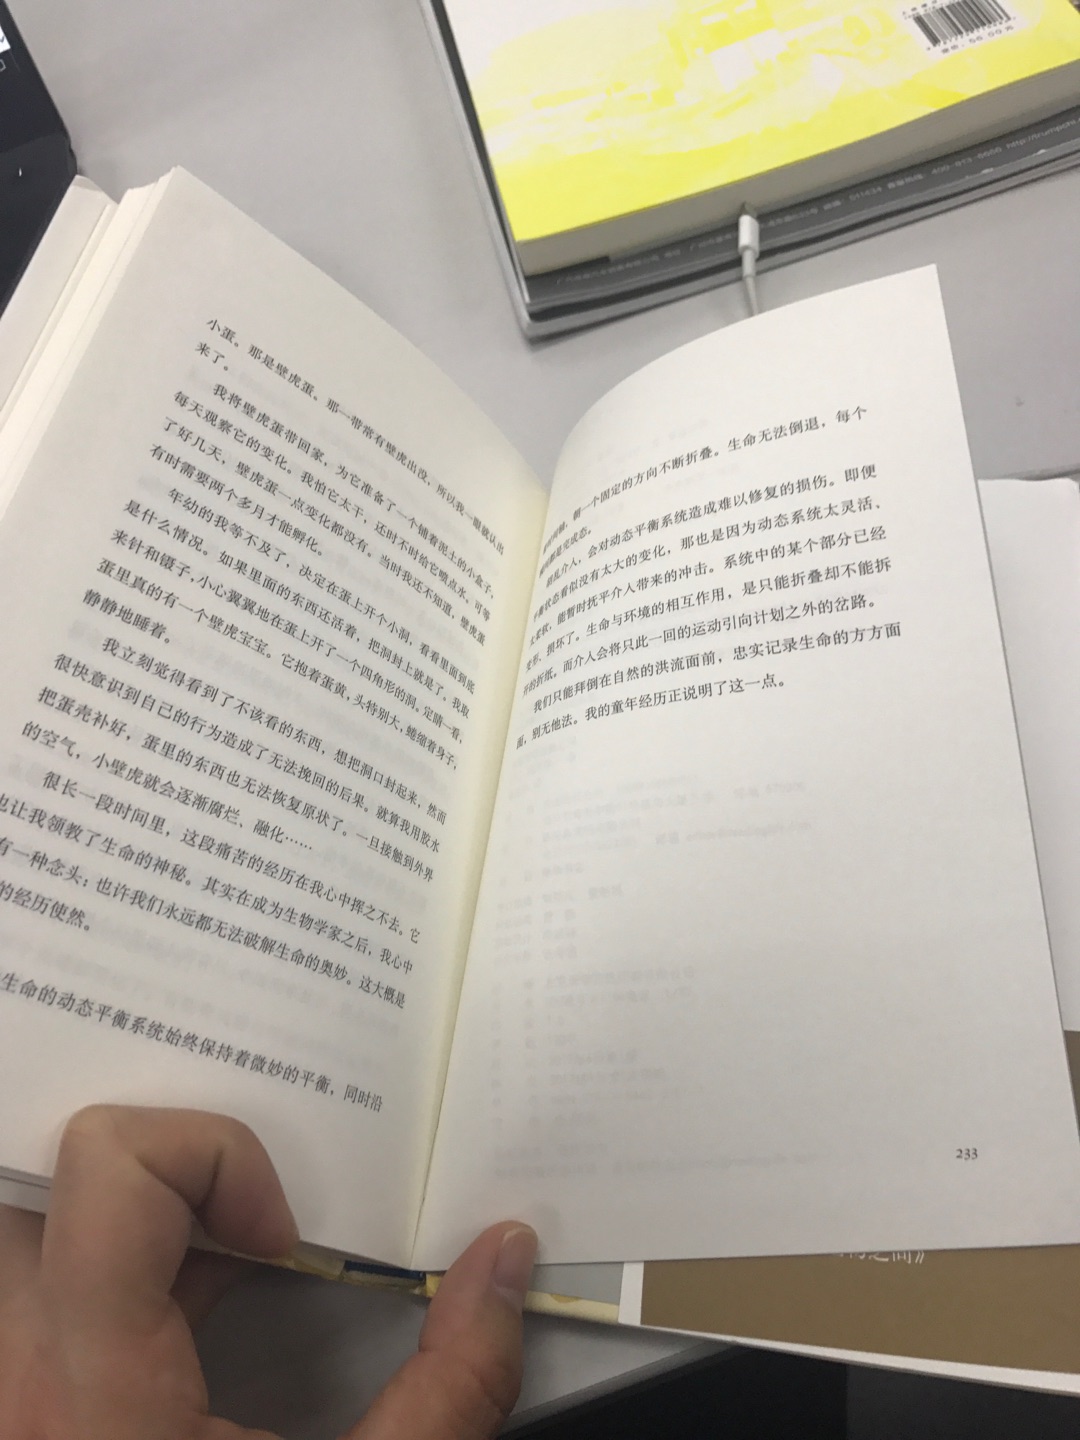 小蛋。那是壁虎蛋。那一带常有壁虎出没，所以我一眼就认出
来了。
我将壁虎蛋带回家，为它准备了一个铺着泥土的小盒子，
每天观察它的变化。我怕它太干，还时不时给它喷点水。可等
了好几天，壁虎蛋一点变化都没有。当时我还不知道，壁虎蛋
有时需要两个多月才能孵化。
年幼的我等不及了，决定在蛋上开个小洞，看看里面到底
是什么情况。如果里面的东西还活着，把洞封上就是了。我取
来针和镊子，小心翼翼地在蛋上开了一个四角形的洞。定睛一看，
蛋里真的有一个壁虎宝宝。它抱着蛋黄，头特别大，蜷缩着身子，
静静地睡着。
我立刻觉得看到了不该看的东西，想把洞口封起来，然而
很快意识到自己的行为造成了无法挽回的后果。就算我用胶水
把蛋壳补好，蛋里的东西也无法恢复原状了。一旦接触到外界
的空气，小壁虎就会逐渐腐烂、融化……
很长一段时间里，这段痛苦的经历在我心中挥之不去。它
也让我领教了生命的神秘。其实在成为生物学家之后，我心中
有一种念头：也许我们永远都无法破解生命的奥妙。这大概是
的经历使然。
生命的动态平衡系统始终保持着微妙的平衡，同时沿
朝一个固定的方向不断折叠。生命无法倒退，每个
都是完成态。
介入，会对动态平衡系统造成难以修复的损伤。即便
平衡状态看似没有太大的变化，那也是因为动态系统太灵活、
太柔软，能暂时抚平介入带来的冲击。系统中的某个部分已经
变形、损坏了。生命与环境的相互作用，是只能折叠却不能拆
开的折纸。而介入会将只此一回的运动引向计划之外的岔路。
我们只能拜倒在自然的洪流面前，忠实记录生命的方方面
面，别无他法。我的童年经历正说明了这一点。
233
定价：56.00元
011434
400-813-6666 http://trumpchi
之间》